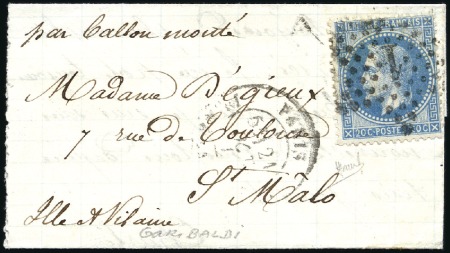 par ballon monté
Madame Dégieux
7 rue de Toulouse
St Malo
Ille & Vilaine
GARIBALDI
PARIS
FRANÇAIS
20C POSTES 20C